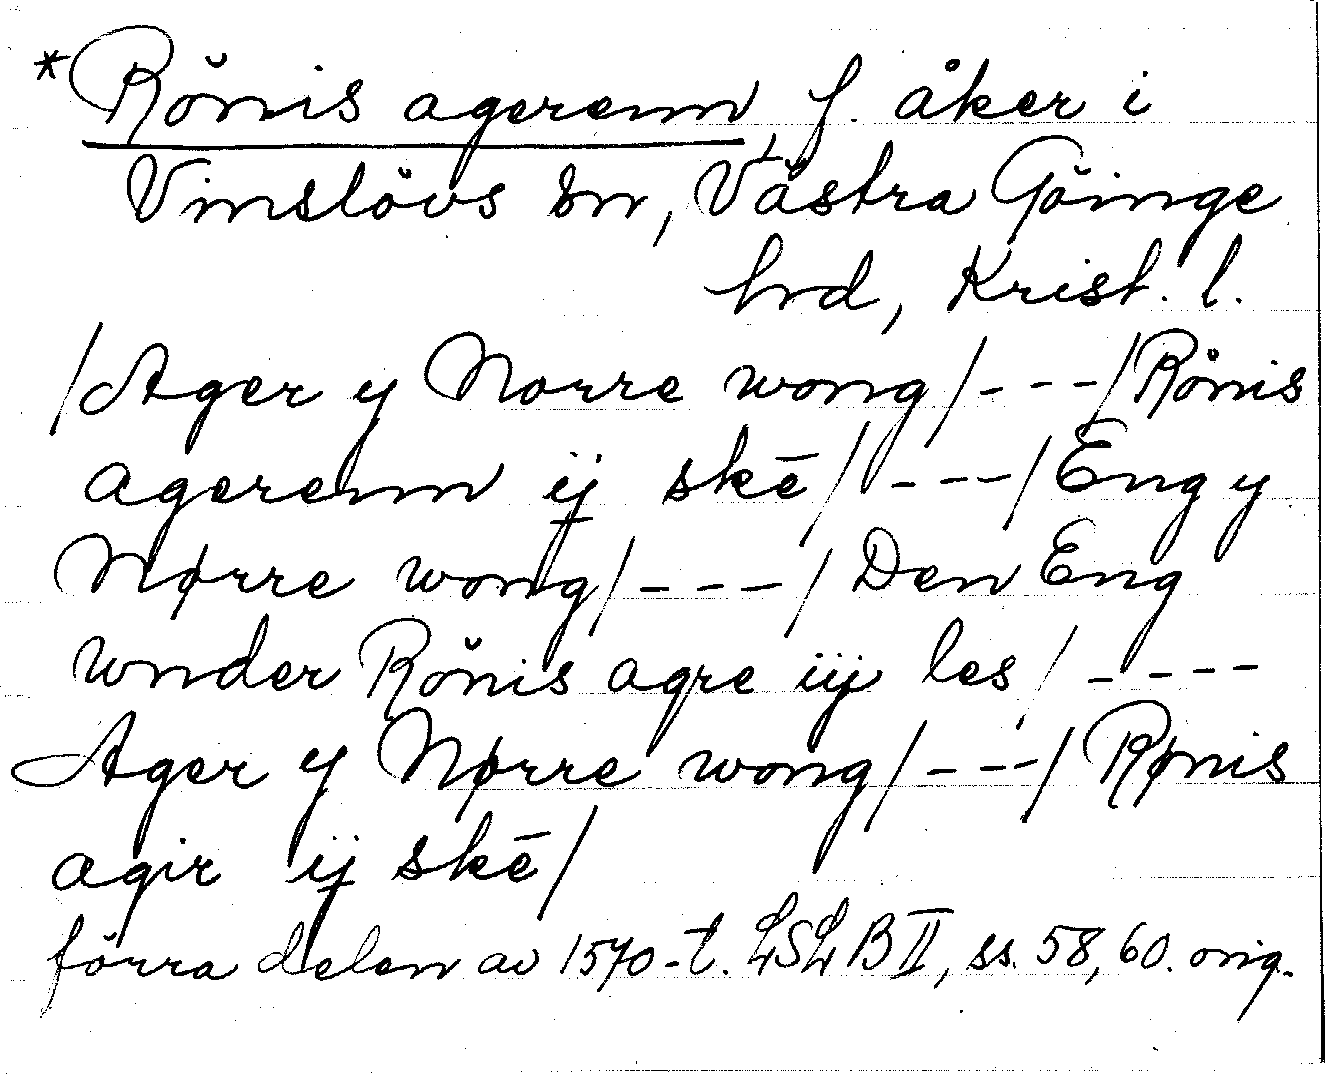 *Rŏnis agerenn, f. åker i
Vinslövs sn, Västra Göinge
hrd, Krist. l.
/Ager y Norre wong/---/Rånis
agerenn ij skē/---/Eng y
Nørre wong/---/Den Eng
wnder Rŏnis agre iij les/----
Ager y Nørre wong/---/Rønis
agir ij skē/
förra delen av 1570-t. LSLB II, ss. 58, 60. orig.